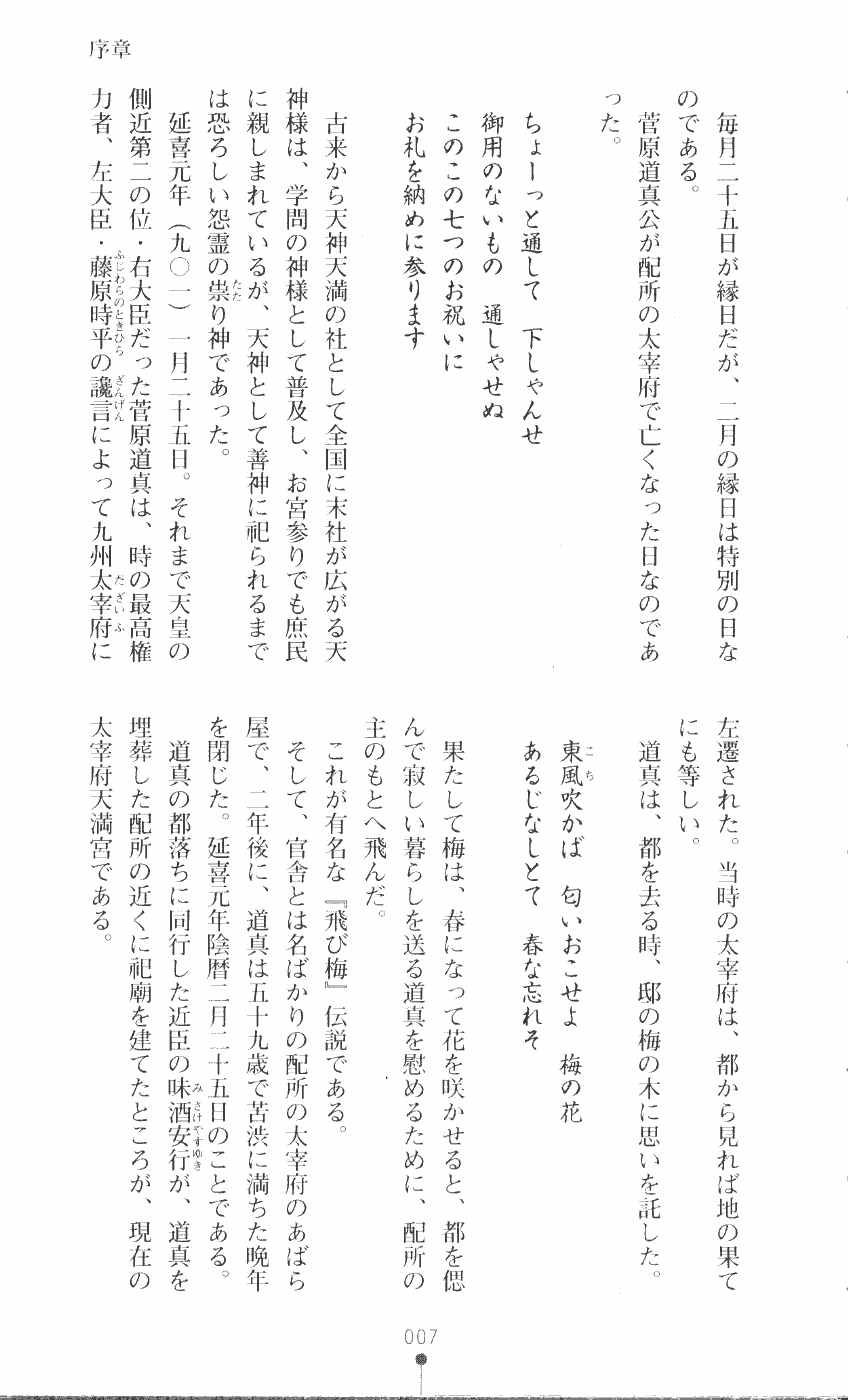 序章
毎月二十五日が縁日だが、二月の縁日は特別の日な
のである。
菅原道真公が配所の太宰府で亡くなった日なのであ
った。
ちょーっと通して　下しゃんせ
御用のないもの　通しゃせぬ
このこの七つのお祝いに
お札を納めに参ります
古来から天神天満の社として全国に末社が広がる天
神様は、学問の神様として普及し、お宮参りでも庶民
に親しまれているが、天神として善神に祀られるまで
は恐ろしい怨霊の祟り神であった。
延喜元年（九〇一）一月二十五日。それまで天皇の
側近第二の位・右大臣だった菅原道真は、時の最高権
力者、左大臣・藤原時平の讒言によって九州太宰府に
左遷された。当時の太宰府は、都から見れば地の果て
にも等しい。
道真は、都を去る時、邸の梅の木に思いを託した。
東風吹かば　匂いおこせよ　梅の花
あるじなしとて　春な忘れそ
果たして梅は、春になって花を咲かせると、都を偲
んで寂しい暮らしを送る道真を慰めるために、配所の
主のもとへ飛んだ。
これが有名な『飛び梅』伝説である。
そして、官舎とは名ばかりの配所の太宰府のあばら
屋で、二年後に、道真は五十九歳で苦渋に満ちた晩年
を閉じた。延喜元年陰暦二月二十五日のことである。
道真の都落ちに同行した近臣の味酒安行が、道真を
埋葬した配所の近くに祀廟を建てたところが、現在の
太宰府天満宮である。
007